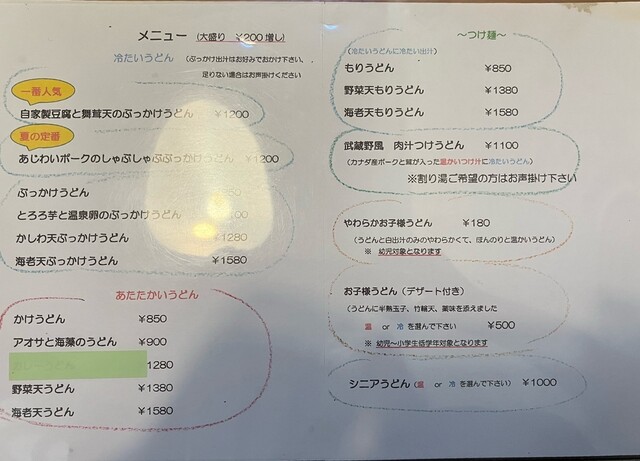 メニュー (大盛り ¥200増し)
冷たいうどん (ぶっかけ出汁はお好みでおかけ下さい、
足りない場合はお声掛けください
一番人気
自家製豆腐と舞茸天のぶっかけうどん ¥1200
夏の定番
あじわいポークのしゃぶしゃぶぶっかけうどん ¥1200
ぶっかけうどん
とろろ芋と温泉卵のぶっかけうどん
かしわ天ぶっかけうどん ¥1280
海老天ぶっかけうどん ¥1580
あたたかいうどん
かけうどん ¥850
アオサと海藻のうどん ¥900
1280
野菜天うどん ¥1380
海老天うどん ¥1580
～つけ麺～
(冷たいうどんに冷たい出汁)
もりうどん ¥850
野菜天もりうどん ¥1380
海老天もりうどん ¥1580
武蔵野風 肉汁つけうどん ¥1100
(カナダ産ポークと茸が入った温かいつけ汁に冷たいうどん)
※割り湯ご希望の方はお声掛け下さい
やわらかお子様うどん ¥180
(うどんと白出汁のみのやわらかくて、ほんのりと温かいうどん)
※ 幼児対象となります
お子様うどん (デザート付き)
(うどんに半熟玉子、竹輪天、薬味を添えました
温 or 冷 を選んで下さい) ¥500
※ 幼児～小学生低学年対象となります
シニアうどん (温 or 冷 を選んで下さい) ¥1000